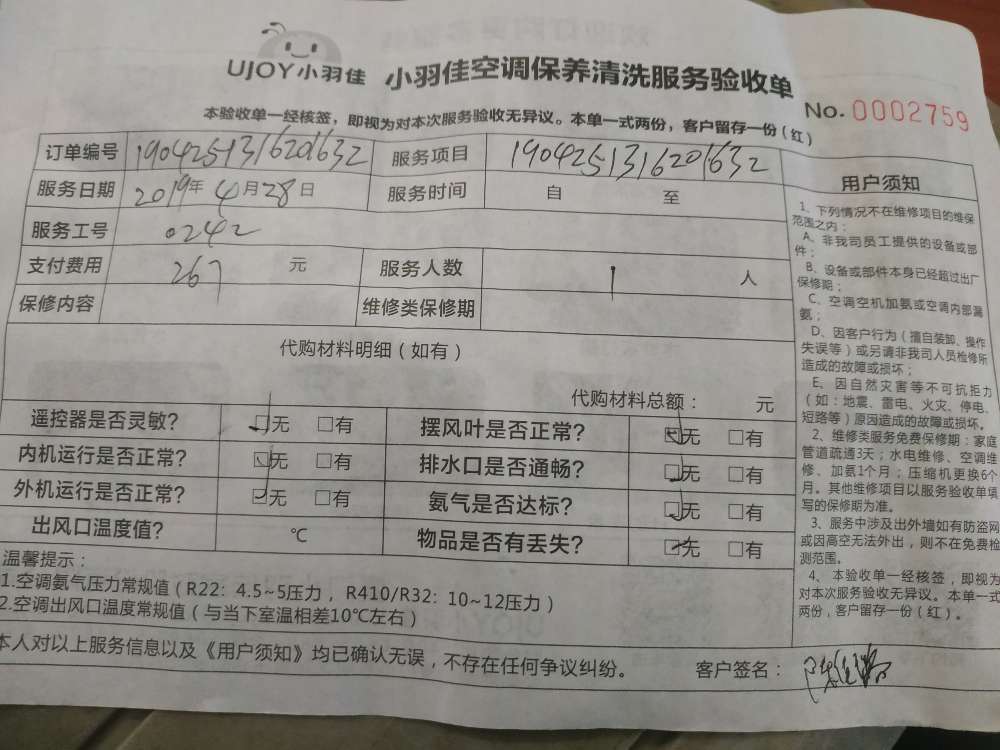 UJOY小羽佳 小羽佳空调保养清洗服务验收单
No. 0002759
本验收单一经核签，即视为对本次服务验收无异议。本单一式两份，客户留存一份（红）
订单编号 1904251316201632 服务项目 1904251316201632
服务日期 2019年 4月28日 服务时间 自 至
服务工号 0242
支付费用 267 元 服务人数 1 人
保修内容 维修类保修期
代购材料明细（如有）
代购材料总额： 元
遥控器是否灵敏? □无 □有 摆风叶是否正常? □无 □有
内机运行是否正常? □无 □有 排水口是否通畅? □无 □有
外机运行是否正常? □无 □有 氨气是否达标? □无 □有
出风口温度值? ℃ 物品是否有丢失? □无 □有
温馨提示：
1.空调氨气压力常规值（R22：4.5~5压力，R410/R32：10~12压力）
2.空调出风口温度常规值（与当下室温相差10℃左右）
本人对以上服务信息以及《用户须知》均已确认无误，不存在任何争议纠纷。 客户签名：
用户须知
1、下列情况不在维修项目的维保
范围之内：
A、非我司员工提供的设备或部
件；
B、设备或部件本身已经超过出厂
保修期；
C、空调空机加氨或空调内部漏
氨；
D、因客户行为（擅自装卸、操作
失误等）或另请非我司人员检修所
造成的故障或损坏；
E、因自然灾害等不可抗拒力
（如：地震、雷电、火灾、停电、
短路等）原因造成的故障或损坏。
2、维修类服务免费保修期：家庭
管道疏通3天；水电维修、空调维
修、加氨1个月；压缩机更换6个
月。其他维修项目以服务验收单填
写的保修期为准。
3、服务中涉及出外墙如有防盗网
或因高空无法外出，则不在免费检
测范围。
4、本验收单一经核签，即视为
对本次服务验收无异议。本单一式
两份，客户留存一份（红）。